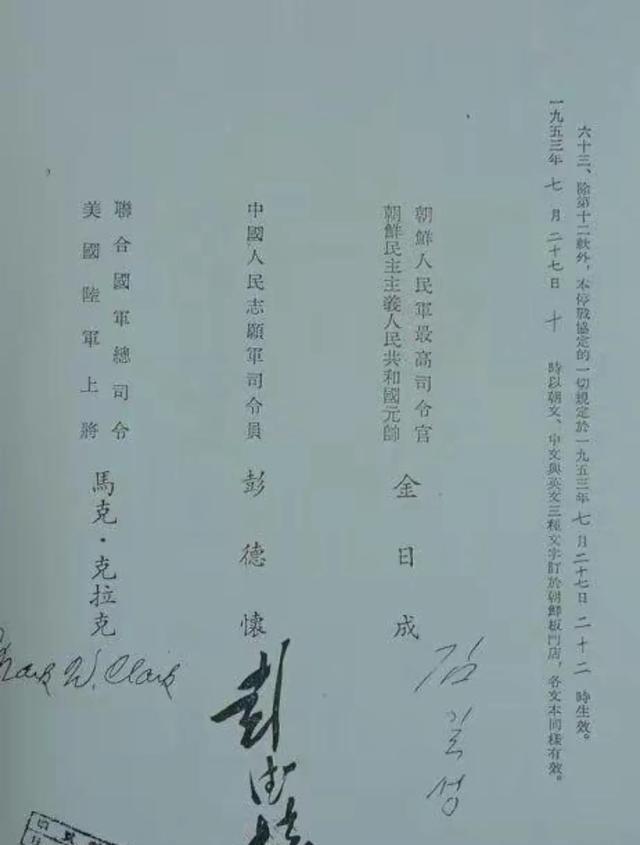 六十三、除第十二款外，本停戰協定的一切規定於一九五三年 七 月 二十七日 二十二 時生效。
一九五三年 七 月 二十七日 十 時以朝文、中文與英文三種文字訂於朝鮮板門店，各文本同樣有效。
朝鮮人民軍最高司令官
朝鮮民主主義人民共和國元帥
金日成
김일성
中國人民志願軍司令員
彭德懷
彭德懷
聯合國軍總司令
美國陸軍上將
馬克·克拉克
Mark W. Clark